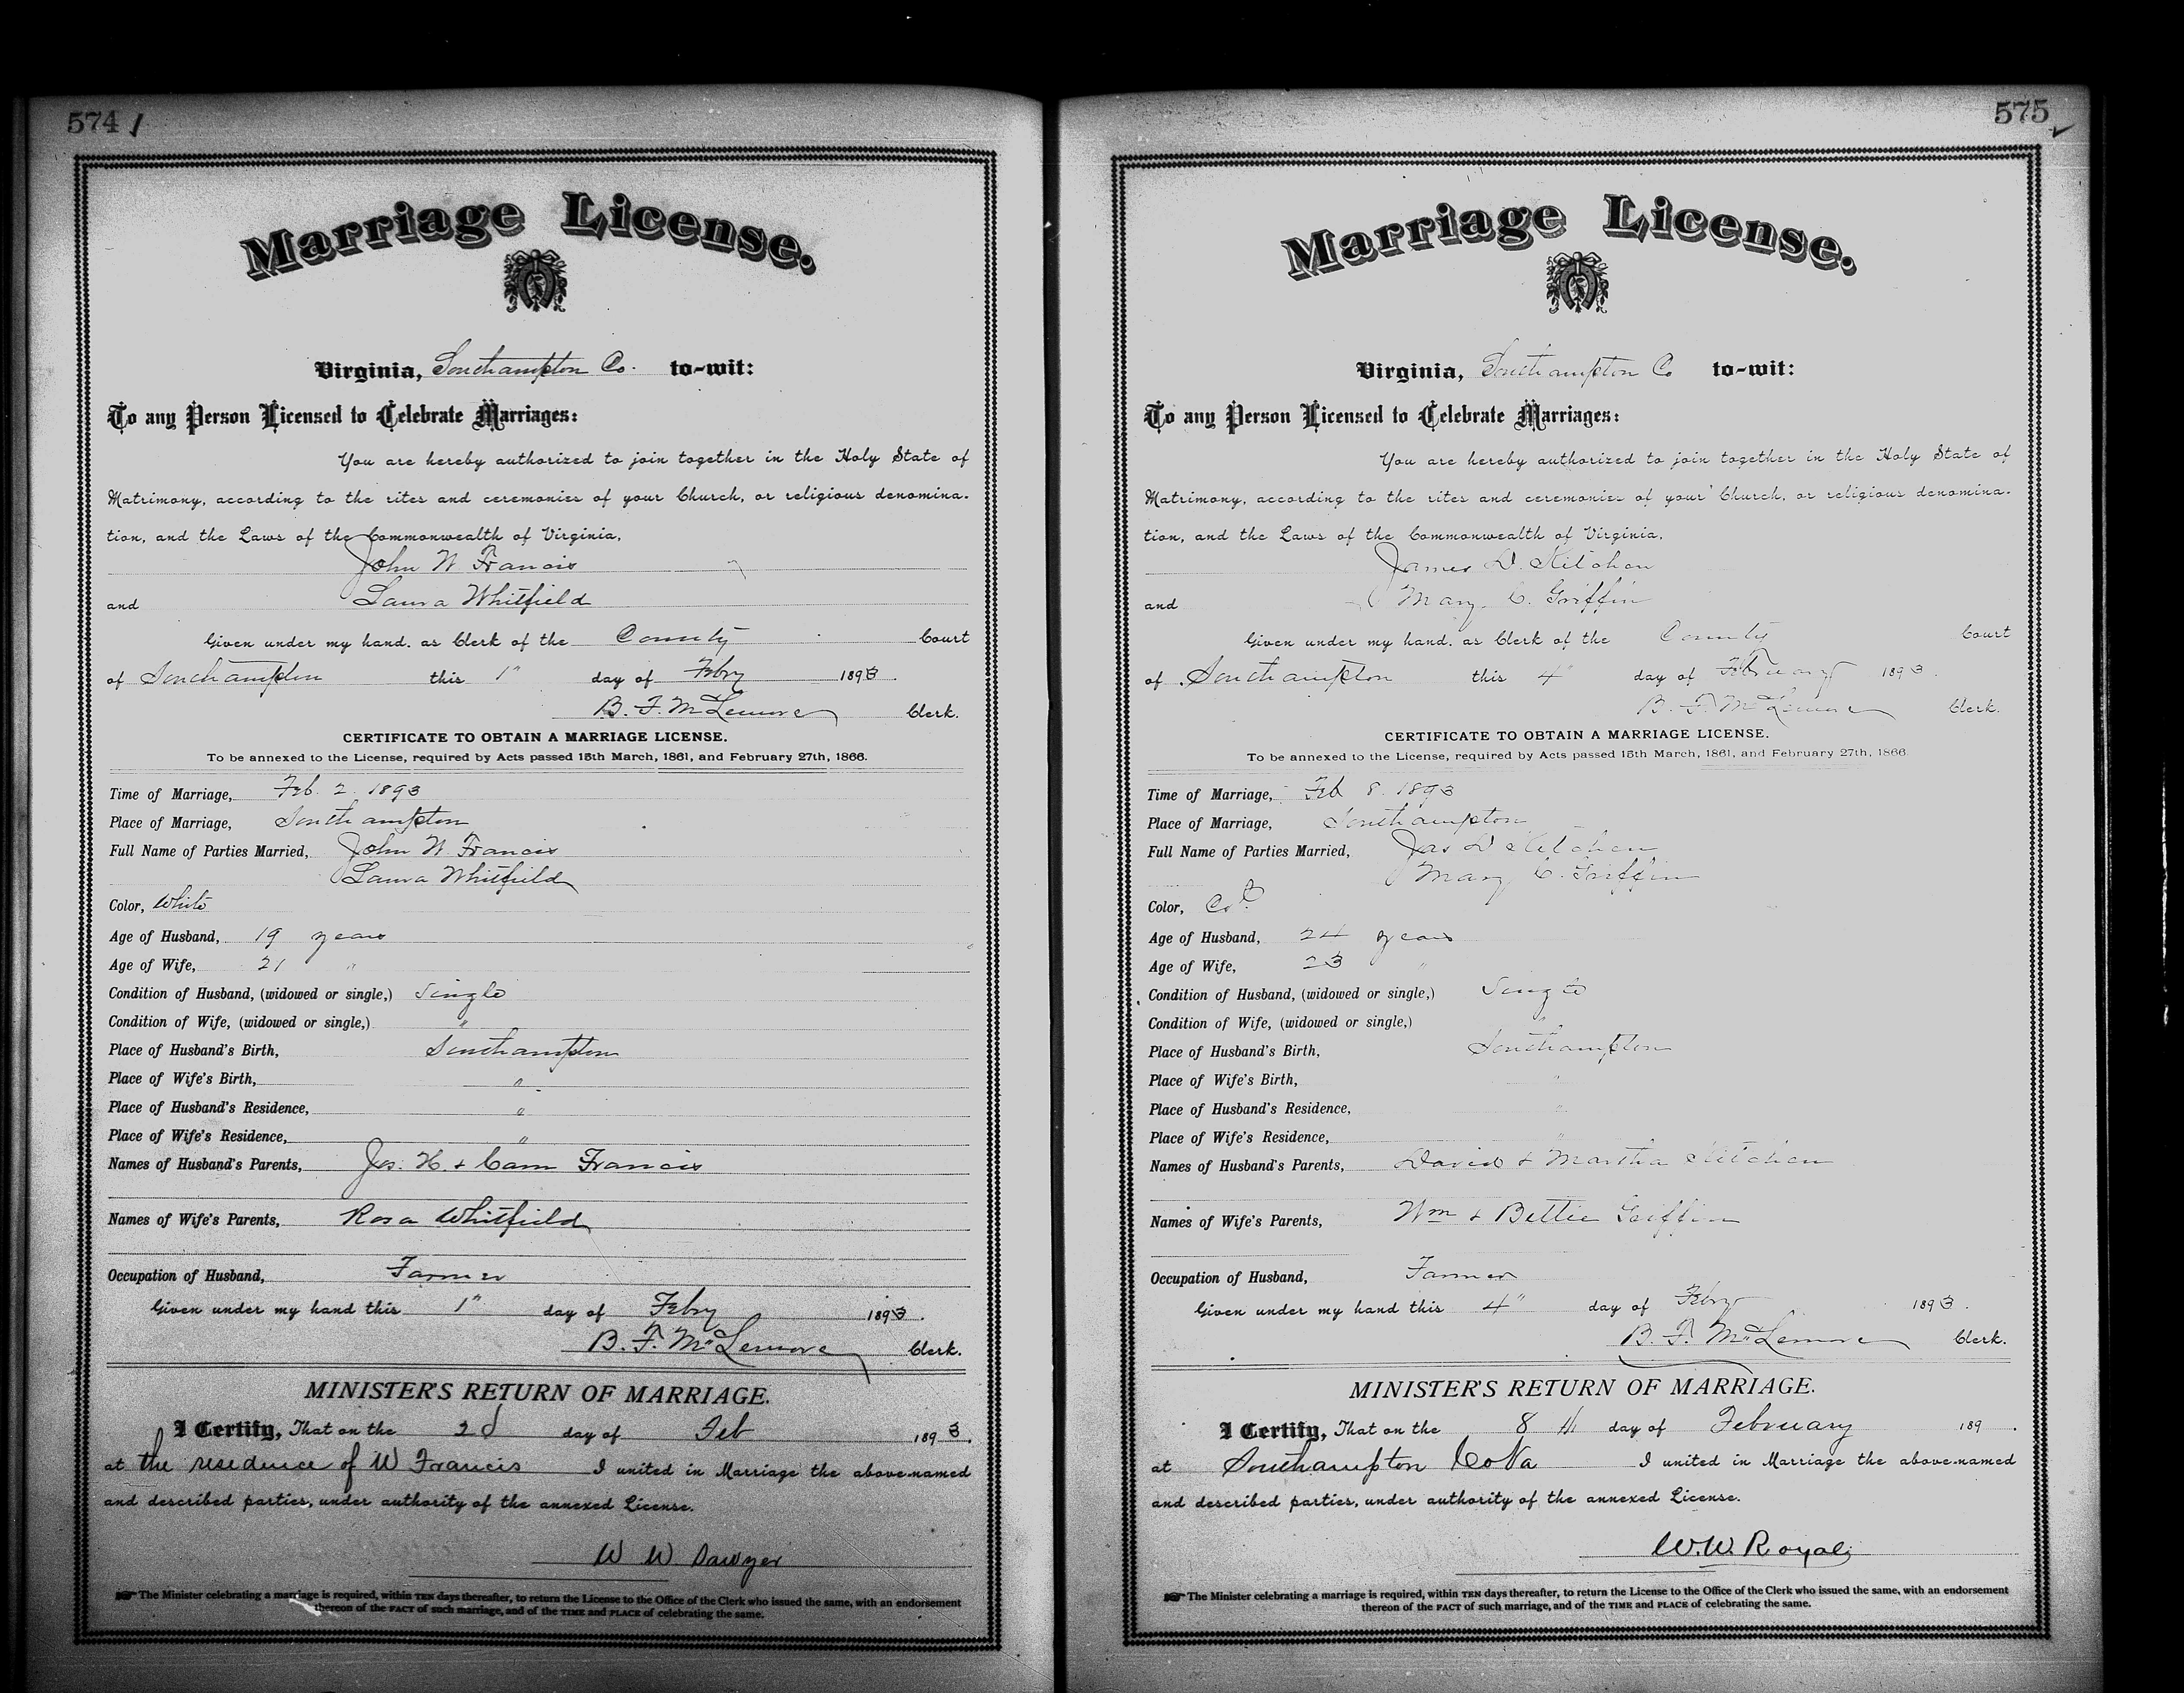 574
Marriage License.
Virginia, Southampton Co. to-wit:
To any Person Licensed to Celebrate Marriages:
You are hereby authorized to join together in the Holy State of
Matrimony, according to the rites and ceremonies of your Church, or religious denomina-
tion, and the Laws of the Commonwealth of Virginia,
John W Francis
and Laura Whitfield
Given under my hand, as Clerk of the County Court
of Southampton this 1" day of Feby 1893.
B. F. McLemore Clerk.
CERTIFICATE TO OBTAIN A MARRIAGE LICENSE.
To be annexed to the License, required by Acts passed 15th March, 1861, and February 27th, 1866.
Time of Marriage, Feb. 2. 1893
Place of Marriage, Southampton
Full Name of Parties Married, John W Francis
Laura Whitfield
Color, White
Age of Husband, 19 years
Age of Wife, 21 "
Condition of Husband, (widowed or single,) Single
Condition of Wife, (widowed or single,) "
Place of Husband's Birth, Southampton
Place of Wife's Birth, "
Place of Husband's Residence, "
Place of Wife's Residence, "
Names of Husband's Parents, H + Cam Francis
Names of Wife's Parents, Rosa Whitfield
Occupation of Husband, Farmer
Given under my hand this 1" day of Feby 1893.
B. F. McLemore Clerk.
MINISTER'S RETURN OF MARRIAGE.
I Certify, That on the 2d day of Feb 1893.
at the residence of W Francis I united in Marriage the above-named
and described parties, under authority of the annexed License.
W W Sawyer
☞ The Minister celebrating a marriage is required, within TEN days thereafter, to return the License to the Office of the Clerk who issued the same, with an endorsement
thereon of the FACT of such marriage, and of the TIME and PLACE of celebrating the same.
575
Marriage License.
Virginia, Southampton Co to-wit:
To any Person Licensed to Celebrate Marriages:
You are hereby authorized to join together in the Holy State of
Matrimony, according to the rites and ceremonies of your Church, or religious denomina-
tion, and the Laws of the Commonwealth of Virginia,
James D. Kitchen
and Mary C. Griffin
Given under my hand, as Clerk of the County Court
of Southampton this 4" day of February 1893.
B. F. McLemore Clerk.
CERTIFICATE TO OBTAIN A MARRIAGE LICENSE.
To be annexed to the License, required by Acts passed 15th March, 1861, and February 27th, 1866.
Time of Marriage, Feb 8. 1893
Place of Marriage, Southampton
Full Name of Parties Married, Jas D Kitchen
Mary C. Griffin
Color, Cold
Age of Husband, 24 years
Age of Wife, 23 "
Condition of Husband, (widowed or single,) Single
Condition of Wife, (widowed or single,) "
Place of Husband's Birth, Southampton
Place of Wife's Birth, "
Place of Husband's Residence, "
Place of Wife's Residence, "
Names of Husband's Parents, David + Martha Kitchen
Names of Wife's Parents, Wm + Bettie Griffin
Occupation of Husband, Farmer
Given under my hand this 4" day of Feby 1893.
B. F. McLemore Clerk.
MINISTER'S RETURN OF MARRIAGE.
I Certify, That on the 8th day of February 189 .
at Southampton Co Va I united in Marriage the above-named
and described parties, under authority of the annexed License.
W. W. Royal,
☞ The Minister celebrating a marriage is required, within TEN days thereafter, to return the License to the Office of the Clerk who issued the same, with an endorsement
thereon of the FACT of such marriage, and of the TIME and PLACE of celebrating the same.